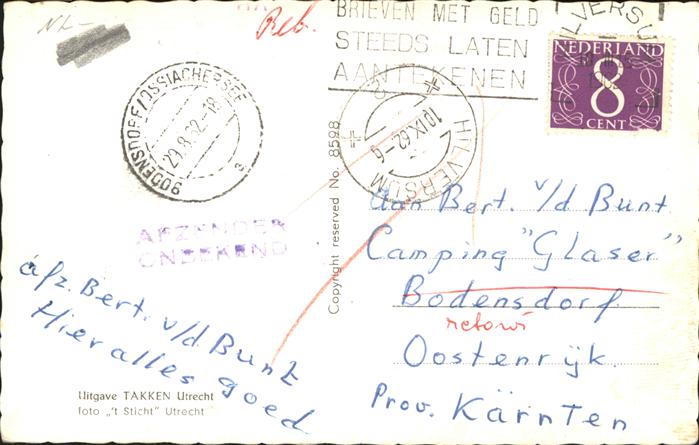 Nl-
Reb.
BRIEVEN MET GELD
STEEDS LATEN
AANTEKENEN
HILVERSUM
NEDERLAND
8
CENT
BODENSDORF/OSSIACHERSEE
29.8.62-18
a
HILVERSUM
10.IX.62-9
AFZENDER
ONBEKEND
Copyright reserved No. 8598
Aan Bert. v/d Bunt
Camping "Glaser"
Bodensdorf
retour
Oostenrijk.
Prov. Kärnten
afz. Bert. v/d. Bunt
Hier alles goed
Uitgave TAKKEN Utrecht
foto „'t Sticht" Utrecht